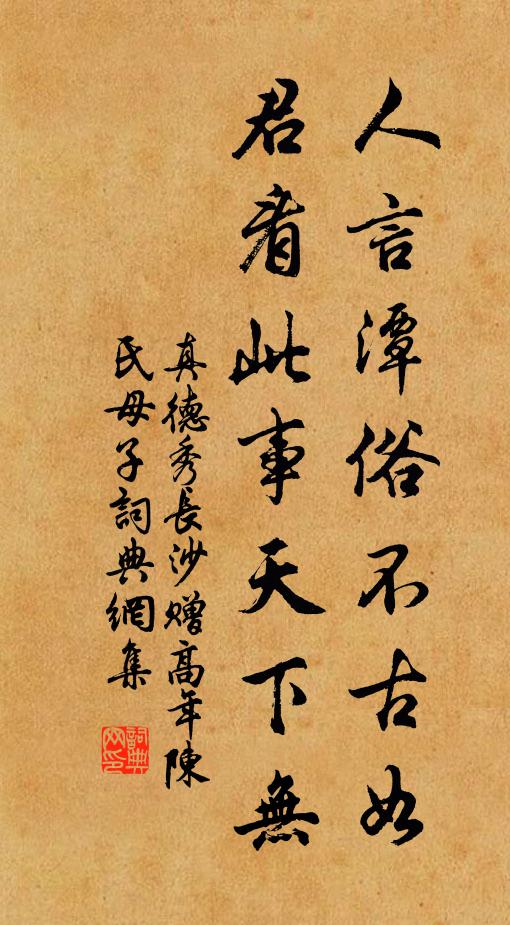 人言潭俗不古如
君看此事天下無
真德秀長沙贈高年陳
氏母子詞典網集
詞典網印